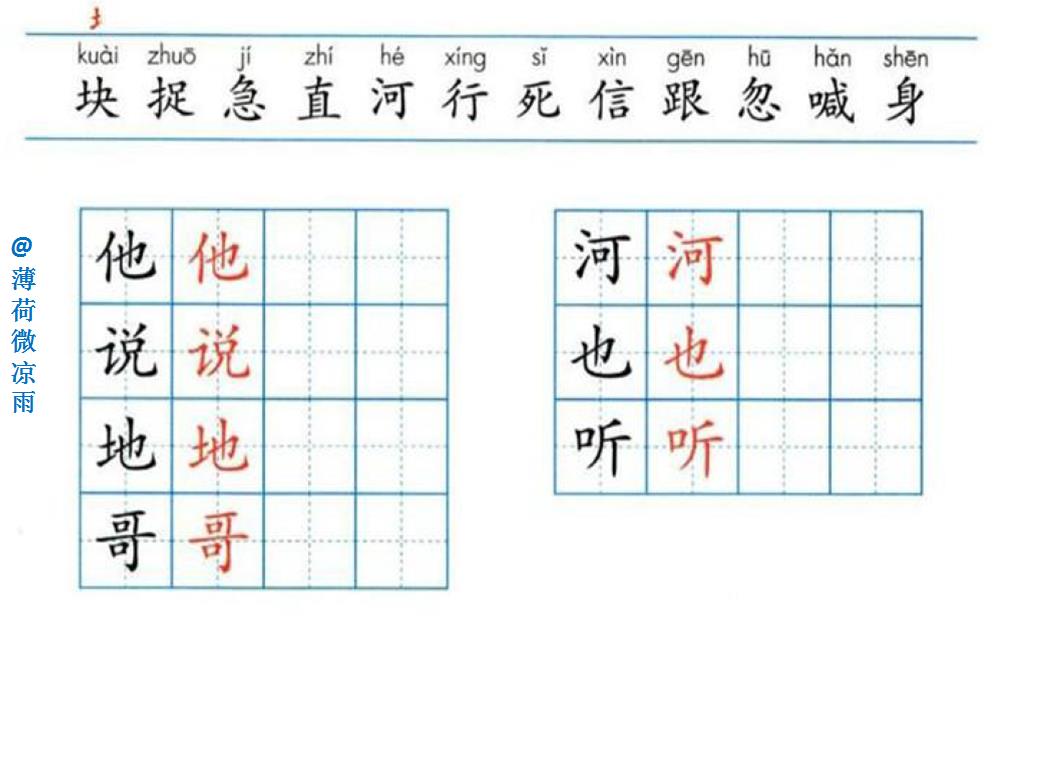 扌
kuài zhuō jí zhí hé xíng sǐ xìn gēn hū hǎn shēn
块 捉 急 直 河 行 死 信 跟 忽 喊 身
他 他
说 说
地 地
哥 哥
河 河
也 也
听 听
@薄荷微凉雨